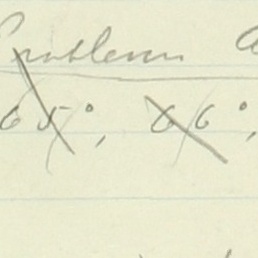 Problem
65°, 66°,